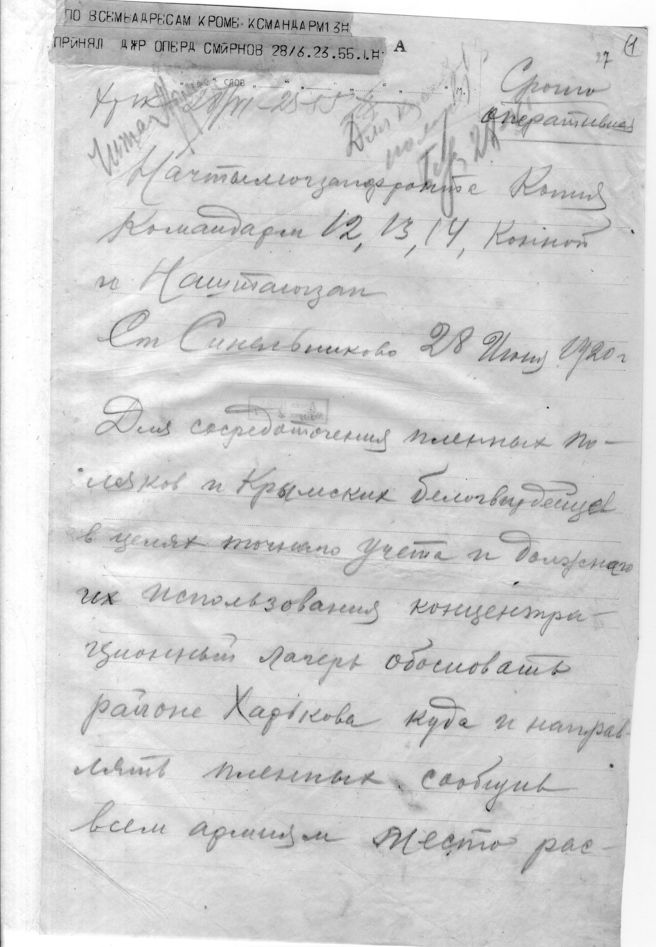 ПО ВСЕМ АДРЕСАМ КРОМЕ КОМАНДАРМ13Н
ПРИНЯЛ ДЖР ОПЕРД СМИРНОВ 28/6.23.55.Н-
А
27
(1
слов
Срочно
оперативная
Для
Начтылюгзапфронта Копия
Командарм 12, 13, 14, Конной
и Наштаюгзап
Ст Синельниково 28 Июня 1920 г
Для сосредоточения пленных по-
ляков и Крымских белогвардейцев
в целях точного учета и должного
их использования концентра-
ционный лагерь обосновать
районе Харькова куда и направ-
лять пленных сообщив
всем армиям место рас-